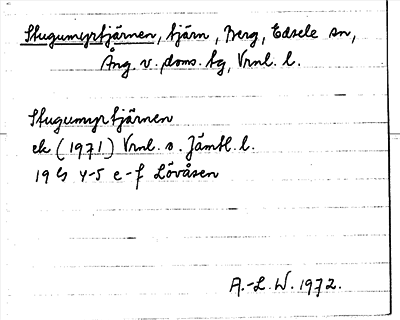 Stugumyrtjärnen, tjärn, Berg, Edsele sn,
Ång. v. doms. tg, Vrnl. l.
Stugumyrtjärnen
ek (1971) Vrnl. o. Jämtl. l.
19 G 4-5 e-f Lövåsen
A.-L. W. 1972.